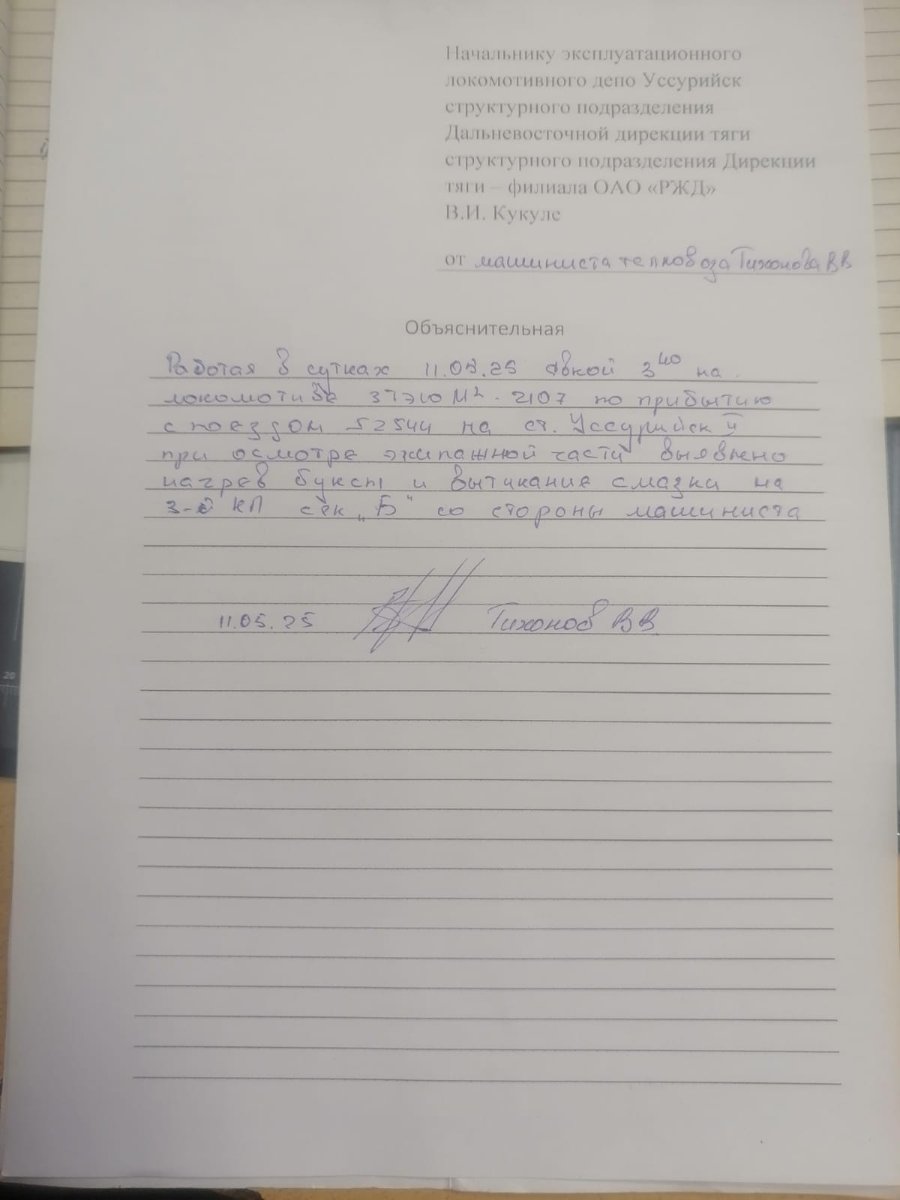 Начальнику эксплуатационного
локомотивного депо Уссурийск
структурного подразделения
Дальневосточной дирекции тяги
структурного подразделения Дирекции
тяги – филиала ОАО «РЖД»
В.И. Кукуле
от машиниста тепловоза Тихонова ВВ
Объяснительная
Работая в сутках 11.05.25 явкой 3⁴⁰ на
локомотиве 3ТЭ10М2-2107 по прибытию
с поездом 52544 на ст. Уссурийск II
при осмотре экипажной части выявлено
нагрев буксы и вытикание смазки на
3-й КП сек „Б" со стороны машиниста
11.05.25 Тихонов ВВ.
20